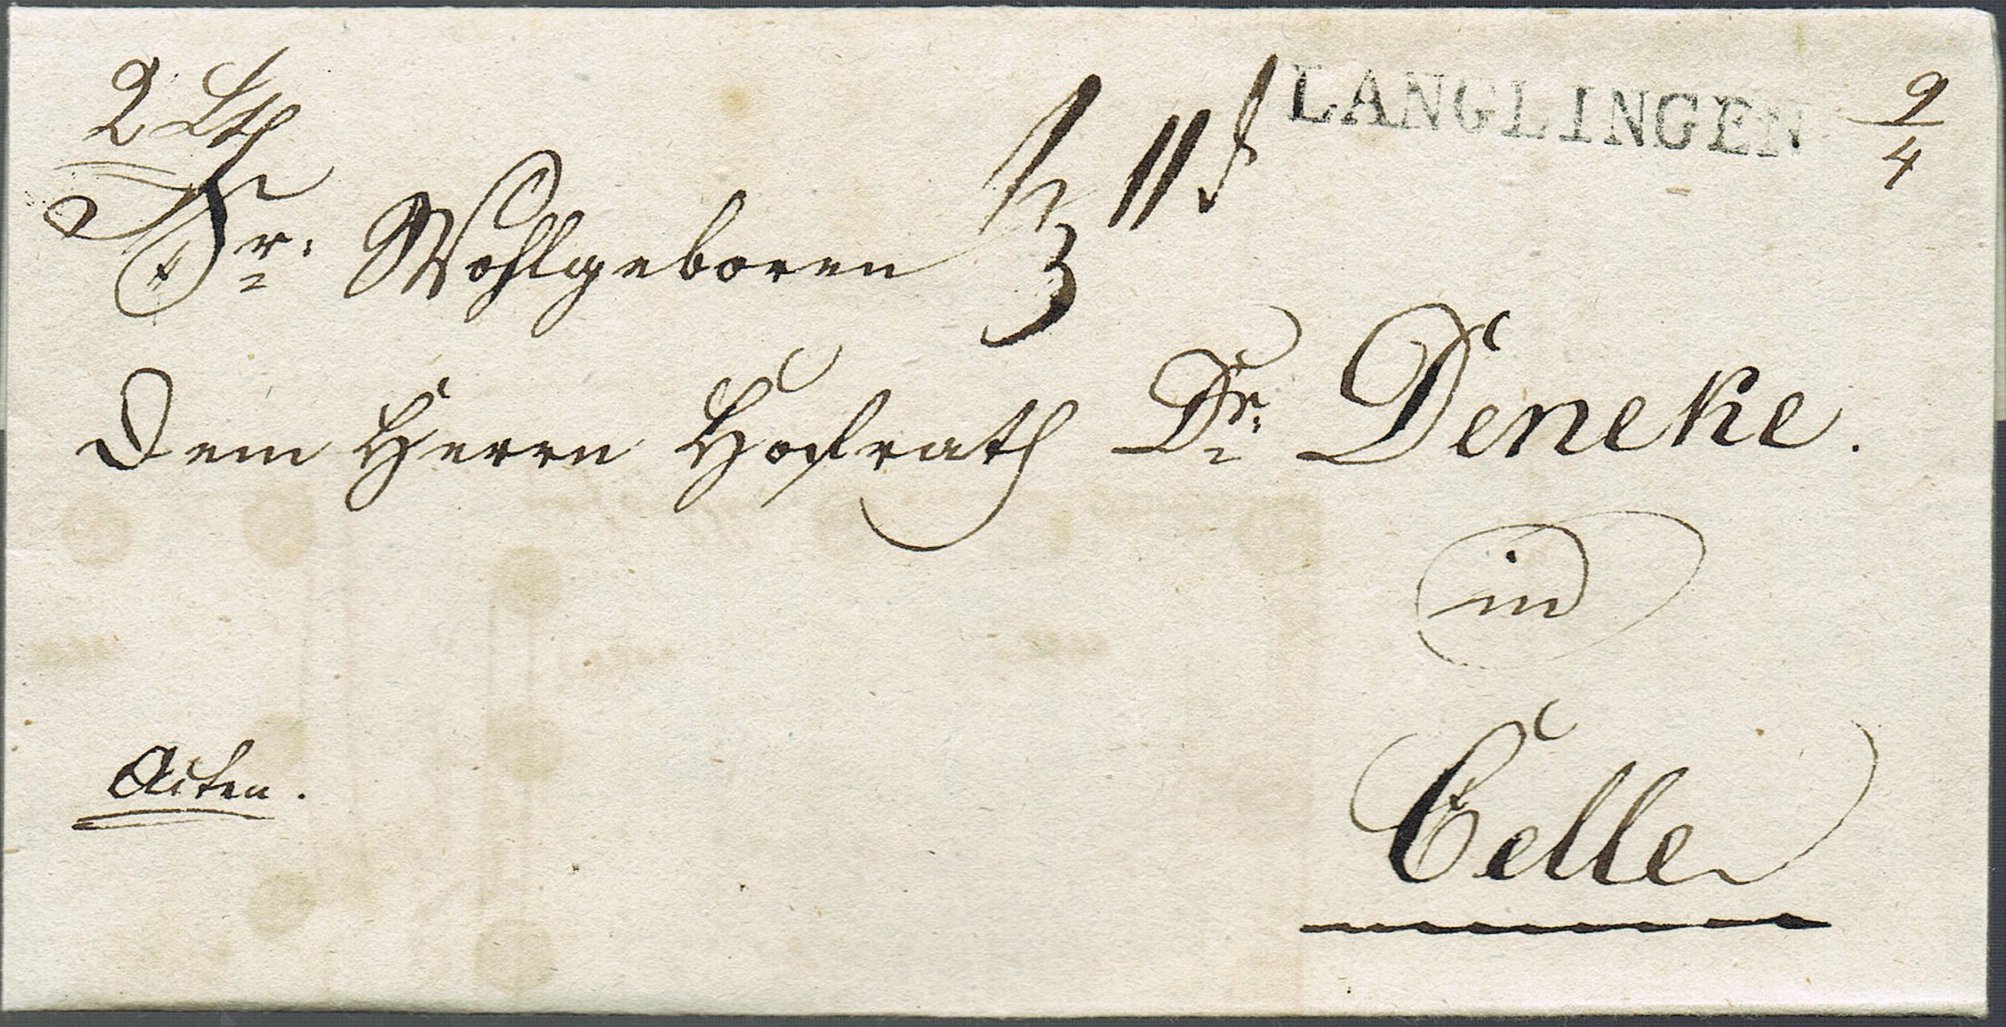 2 Lth
LANGLINGEN 9/4
Sr. Wohlgeboren
Dem Herrn Hofrath Dr. Deneke.
in
Celle
Acten.